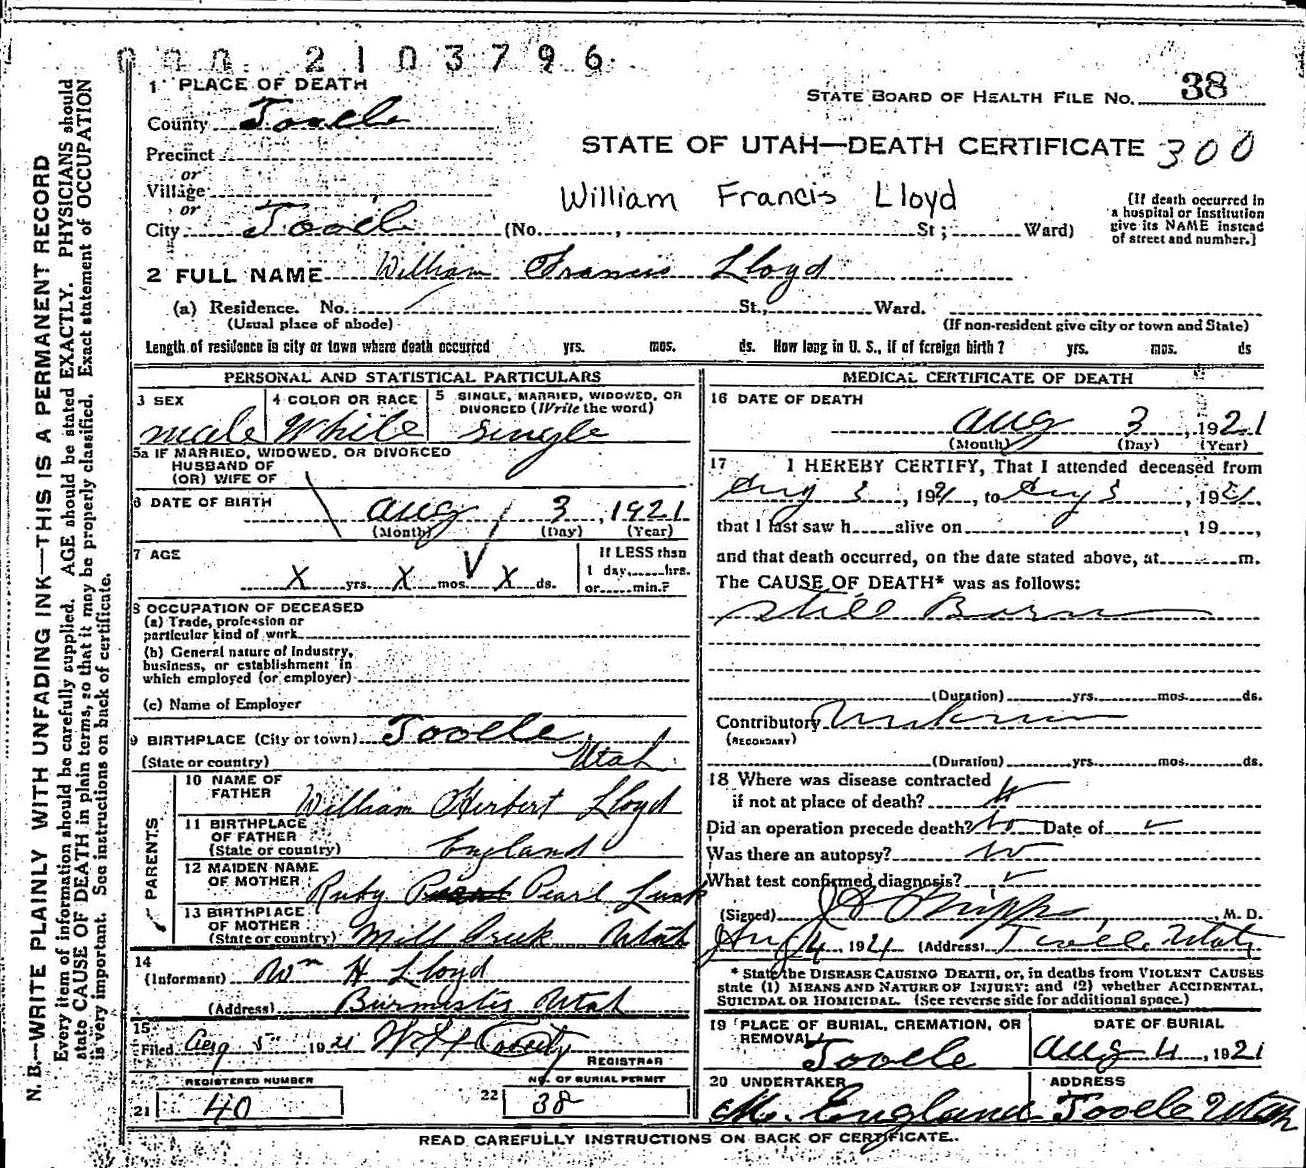 000 2103796
1 PLACE OF DEATH
STATE BOARD OF HEALTH FILE NO. 38
County Tooele
Precinct
or
Village
or
City Tooele
STATE OF UTAH—DEATH CERTIFICATE 300
William Francis Lloyd
(No. , St ; Ward)
[If death occurred in
a hospital or institution
give its NAME instead
of street and number.]
2 FULL NAME William Francis Lloyd
(a) Residence. No. St., Ward.
(Usual place of abode)
(If non-resident give city or town and State)
Length of residence in city or town where death occurred yrs. mos. ds. How long in U. S., if of foreign birth? yrs. mos. ds
PERSONAL AND STATISTICAL PARTICULARS
3 SEX
male
4 COLOR OR RACE
White
5 SINGLE, MARRIED, WIDOWED, OR
DIVORCED (Write the word)
single
5a IF MARRIED, WIDOWED, OR DIVORCED
HUSBAND OF
(OR) WIFE OF
6 DATE OF BIRTH
Aug 3, 1921
(Month) (Day) (Year)
7 AGE
X yrs. X mos. X ds.
If LESS than
1 day, hrs.
or min.?
8 OCCUPATION OF DECEASED
(a) Trade, profession or
particular kind of work
(b) General nature of Industry,
business, or establishment in
which employed (or employer)
(c) Name of Employer
9 BIRTHPLACE (City or town) Tooele
(State or country) Utah
PARENTS
10 NAME OF
FATHER William Herbert Lloyd
11 BIRTHPLACE
OF FATHER
(State or country) England
12 MAIDEN NAME
OF MOTHER Ruby Pearl Lusk
13 BIRTHPLACE
OF MOTHER
(State or country) Mill Creek Utah
14
(Informant) Wm H Lloyd
(Address) Burmester Utah
15
Filed Aug 5 1921
REGISTRAR
REGISTERED NUMBER
21 40
NO. OF BURIAL PERMIT
22 38
MEDICAL CERTIFICATE OF DEATH
16 DATE OF DEATH
Aug 3, 1921
(Month) (Day) (Year)
17 I HEREBY CERTIFY, That I attended deceased from
Aug 3, 1921, to Aug 3, 1921,
that I last saw h alive on , 19 ,
and that death occurred, on the date stated above, at m.
The CAUSE OF DEATH* was as follows:
Still Born
(Duration) yrs. mos. ds.
Contributory Unknown
(SECONDARY)
(Duration) yrs. mos. ds.
18 Where was disease contracted
if not at place of death?
Did an operation precede death? No Date of
Was there an autopsy? no
What test confirmed diagnosis?
(Signed) J H Phipps, M. D.
Aug 4, 1921 (Address) Tooele Utah
* State the DISEASE CAUSING DEATH, or, in deaths from VIOLENT CAUSES
state (1) MEANS AND NATURE OF INJURY; and (2) whether ACCIDENTAL,
SUICIDAL OR HOMICIDAL. (See reverse side for additional space.)
19 PLACE OF BURIAL, CREMATION, OR
REMOVAL
Tooele
DATE OF BURIAL
Aug 4, 1921
20 UNDERTAKER
M. England
ADDRESS
Tooele Utah
READ CAREFULLY INSTRUCTIONS ON BACK OF CERTIFICATE.
N. B.—WRITE PLAINLY WITH UNFADING INK—THIS IS A PERMANENT RECORD
Every item of information should be carefully supplied. AGE should be stated EXACTLY. PHYSICIANS should
state CAUSE OF DEATH in plain terms, so that it may be properly classified. Exact statement of OCCUPATION
is very important. See instructions on back of certificate.